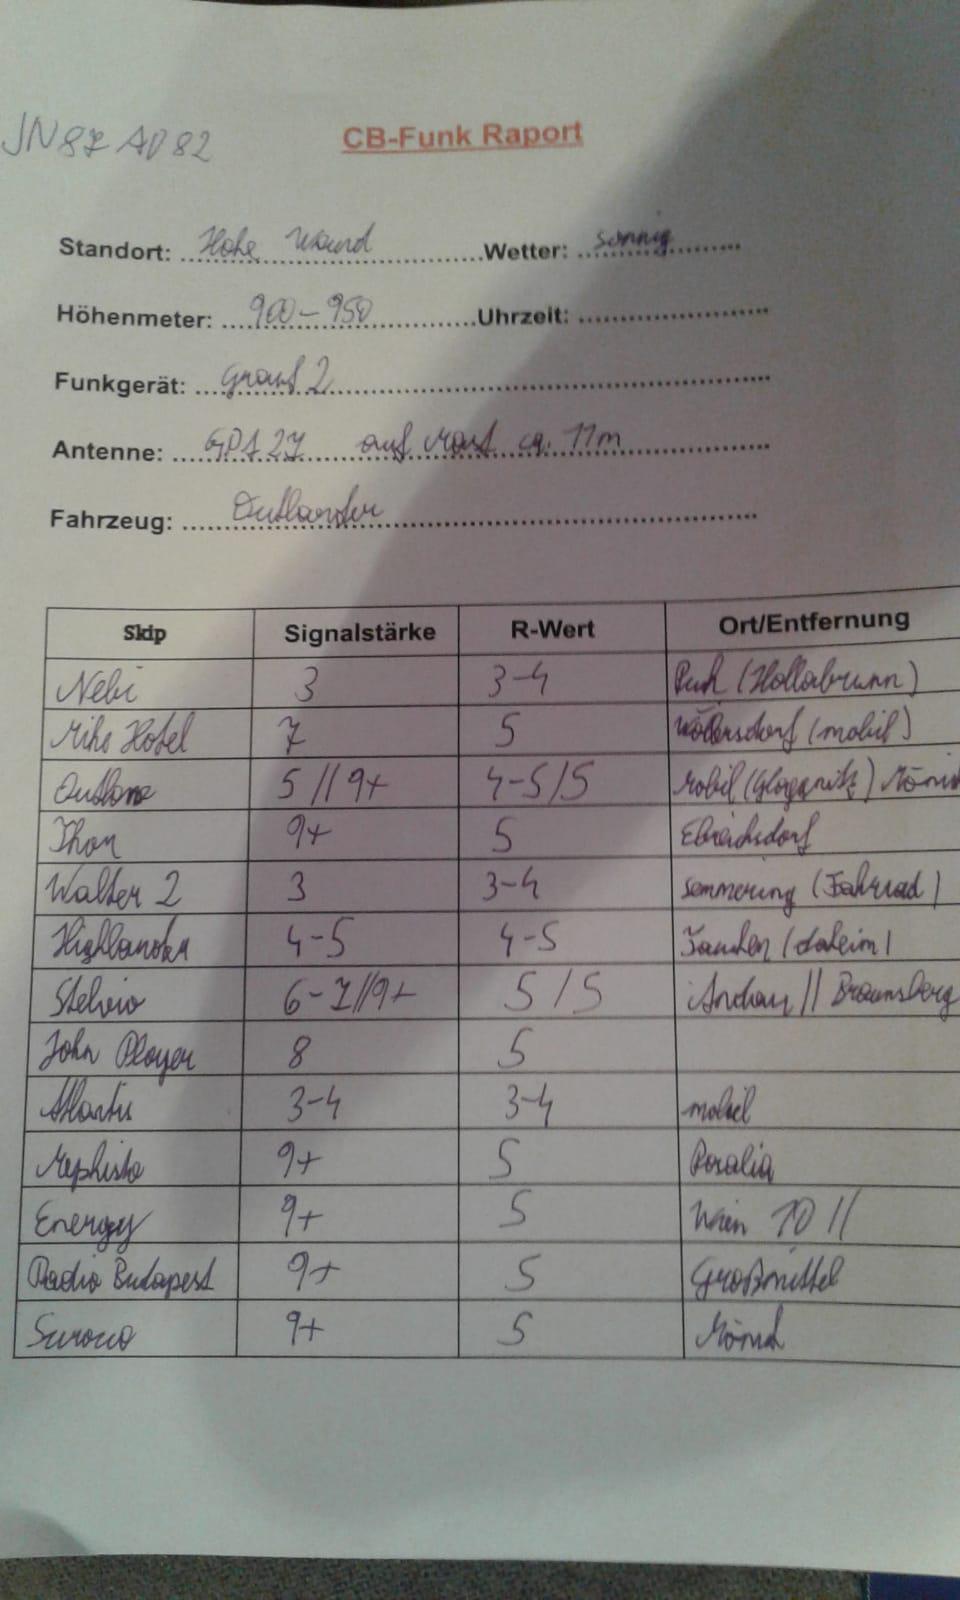 JN87AD82
CB-Funk Raport
Standort: Hohe Wand Wetter: sonnig
Höhenmeter: 900-950 Uhrzeit:
Funkgerät: Grant 2
Antenne: GPA 27 auf Mast ca. 11m
Fahrzeug: Outlander
Skip Signalstärke R-Wert Ort/Entfernung
Nebi 3 3-4 Puch (Hollabrunn)
Mike Hotel 7 5 Wöllersdorf (mobil)
5 // 9+ 4-5/5 Mobil (Gloggnitz)
Thor 9+ 5 Ebreichsdorf
Walter 2 3 3-4 Semmering (Fahrrad)
Highlander 4-5 4-5 Tauchen (daheim)
Stelvio 6-7//9+ 5/5 Andau // Braunsberg
John Player 8 5
3-4 3-4 mobil
Mephisto 9+ 5 Rosalia
Energy 9+ 5 Wien 10 //
Radio Budapest 9+ 5 Großmittel
9+ 5